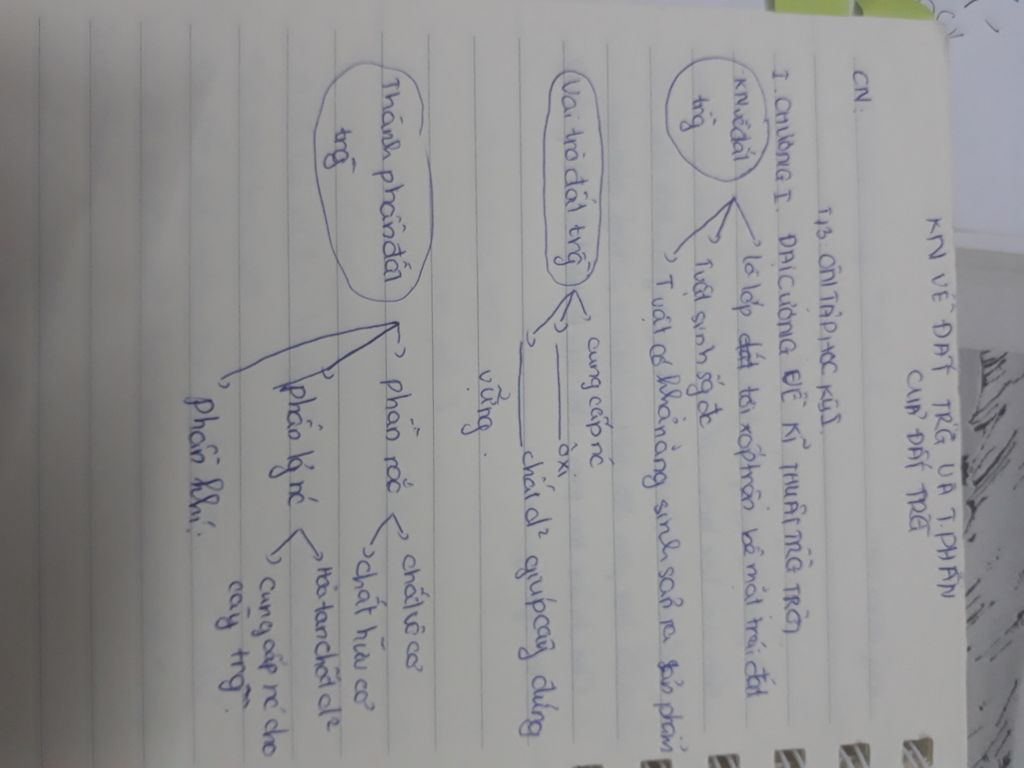 KN VỀ ĐẤT TRỒG VÀ T.PHẦN
CỦA ĐẤT TRỒ
CN.
T13. ÔN TẬP HỌC KỲ I
I. CHƯƠNG I. ĐẠI CƯƠNG VỀ KĨ THUẬT TRỒNG TRỌT
KN về đất
trồg
là lớp tơi xốp trên bề mặt trái đất
T vật sinh sốg đc
T vật có khả năng sinh soản ra sản phẩm
Vai trò đất trồg
cung cấp nc
ôxi.
chất d² giúp cây đứng
vững.
Thành phần đất
trồg
phần rắn
chất vô cơ
chất hữu cơ
phần lỏg nc
hòa tan chất d²
cung cấp nc cho
cây trồg.
phần khí.